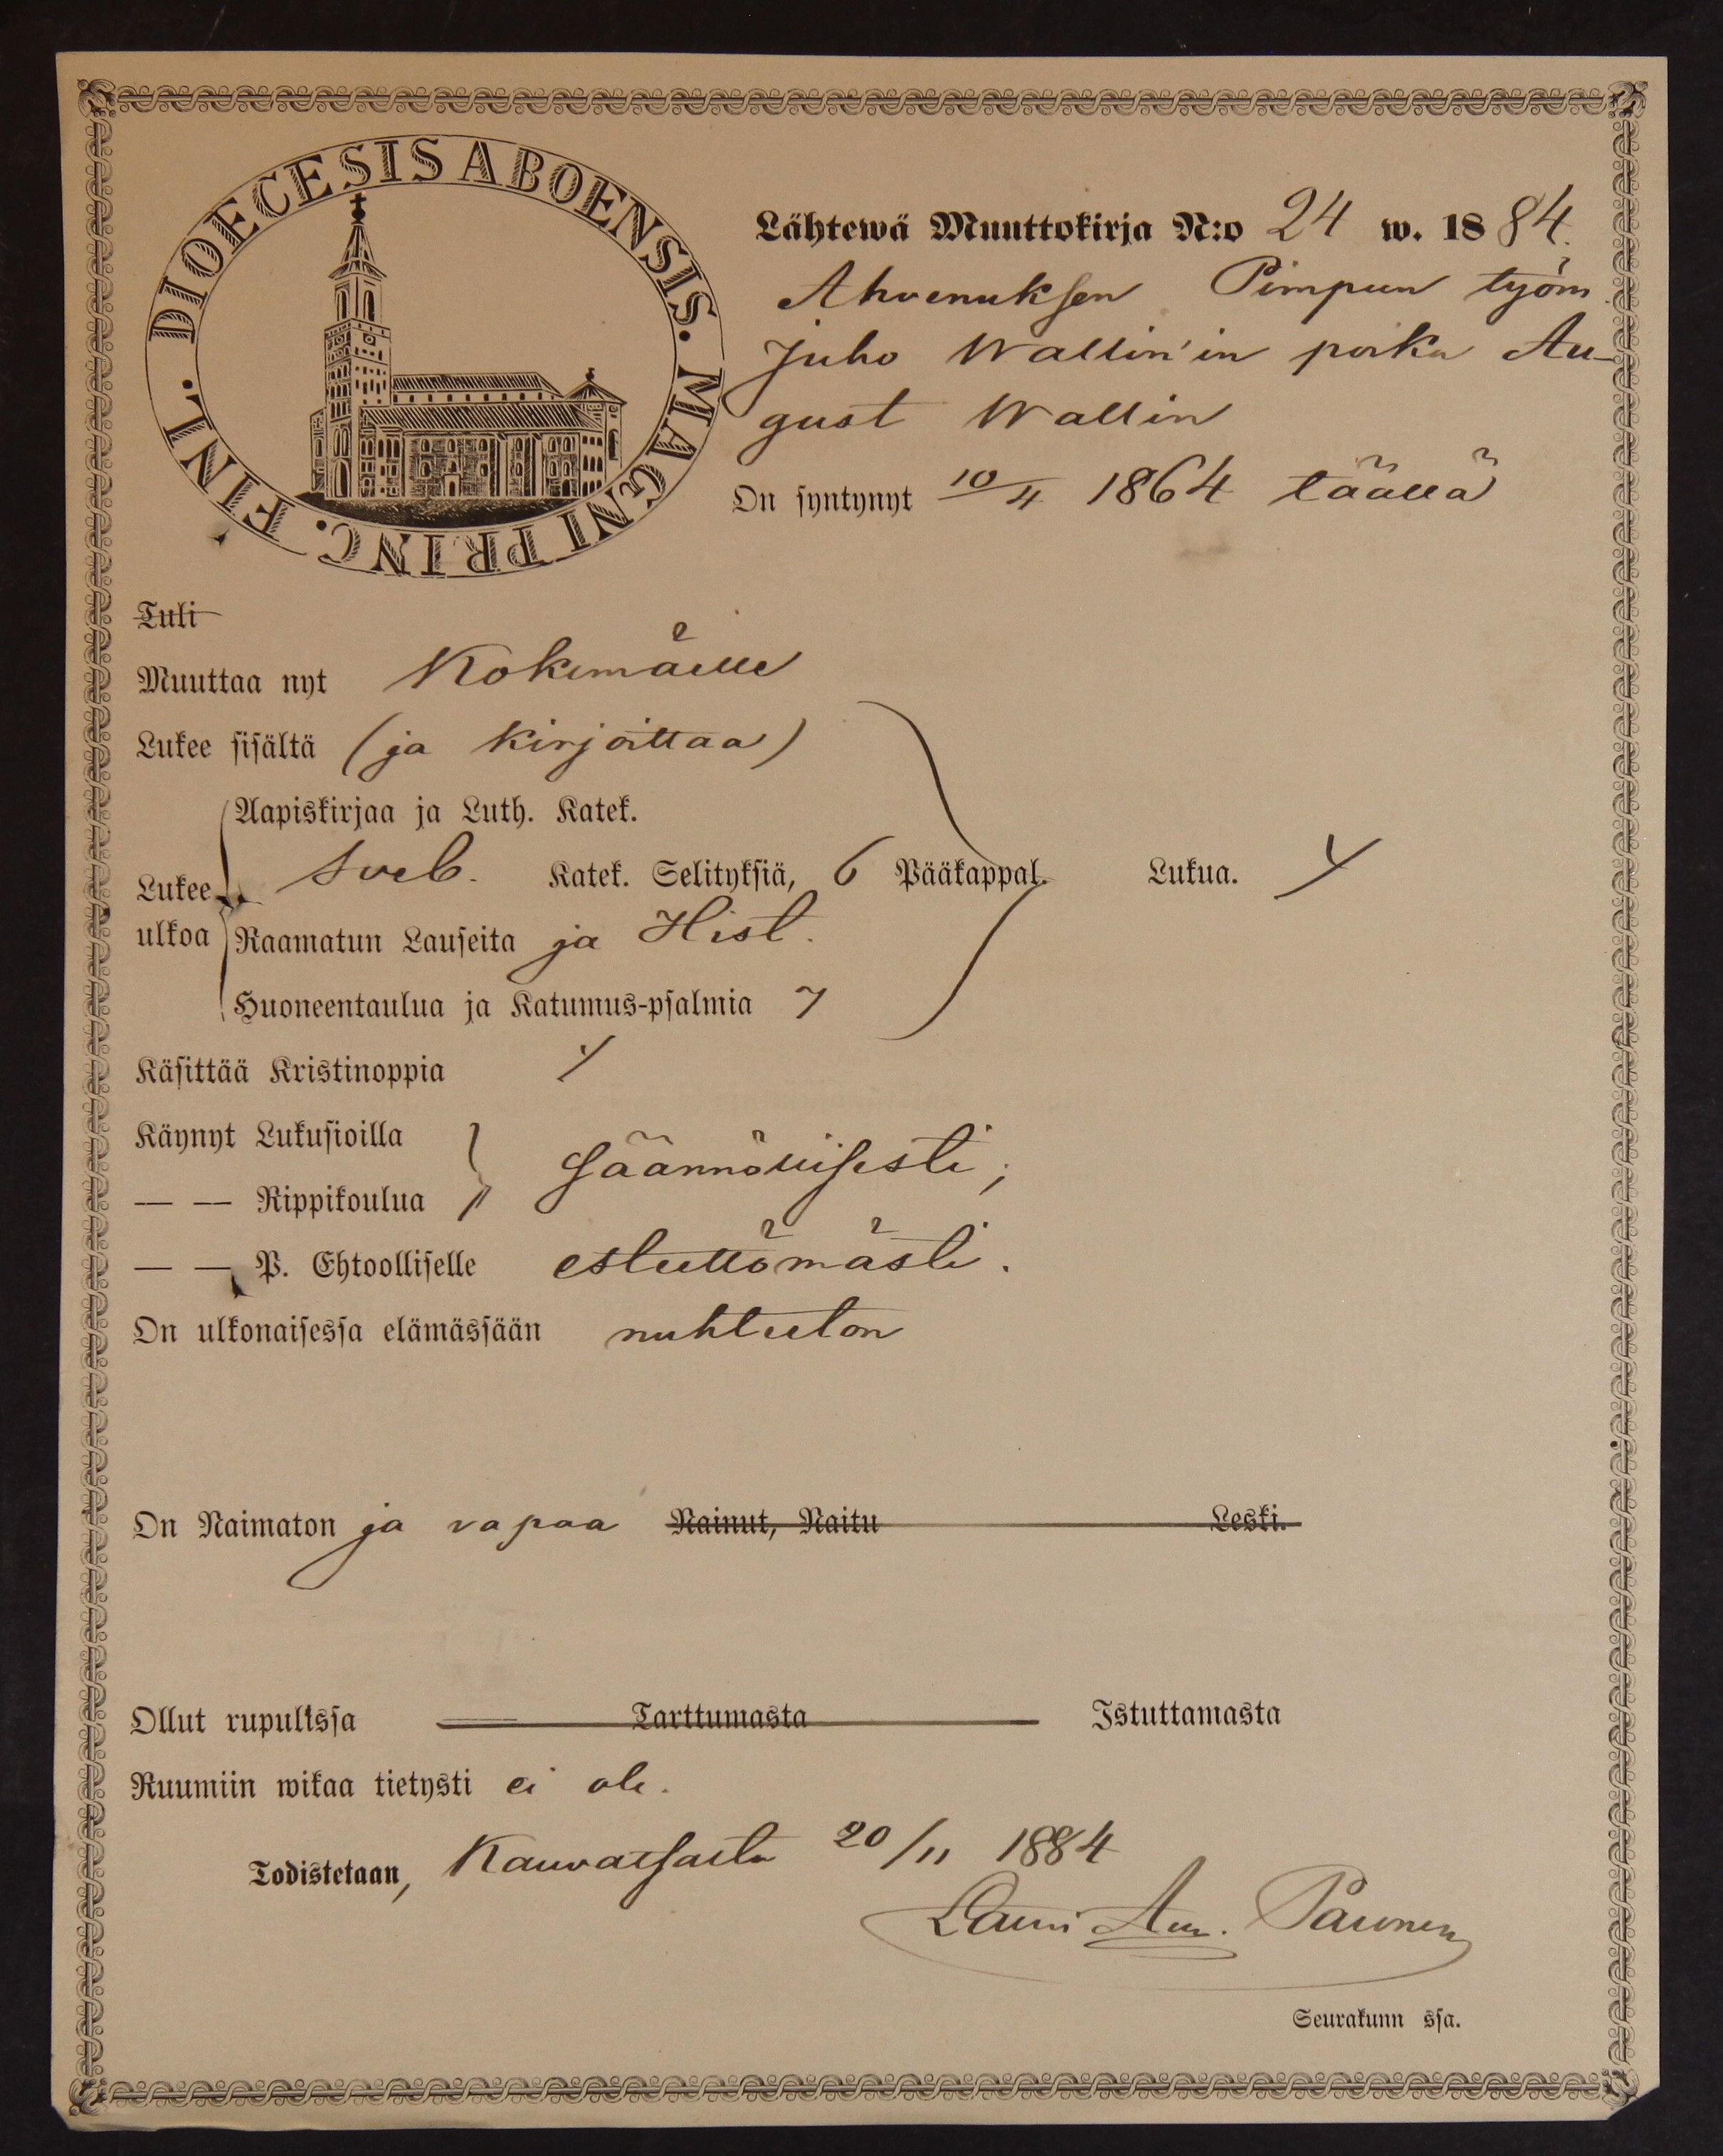 DIOECESIS ABOENSIS. MAGNI PRINC. FINL.
Lähtewä Muuttokirja N:o 24 w. 1884.
Ahvenuksen Pimpun työm.
Juho Wallin'in poika Au-
gust Wallin
On syntynyt 10/4 1864 täällä
Tuli
Muuttaa nyt Kokemäelle
Lukee sisältä (ja kirjoittaa)
Aapiskirjaa ja Luth. Katek.
Lukee Sveb. Katek. Selityksiä, 6 Pääkappal. Lukua.
ulkoa Raamatun Lauseita ja Hist.
Huoneentaulua ja Katumus-psalmia 7
Käsittää Kristinoppia
Käynyt Lukusioilla
säännöllisesti;
— — Rippikoulua
— — P. Ehtoolliselle esteettömästi.
On ulkonaisessa elämässään nuhteeton
On Naimaton ja vapaa Nainut, Naitu Leski.
Ollut rupulissa Tarttumasta Istuttamasta
Ruumiin wikaa tietysti ei ole.
Todistetaan, Kauvatsasta 20/11 1884
Lauri Paunen
Seurakunn ssa.